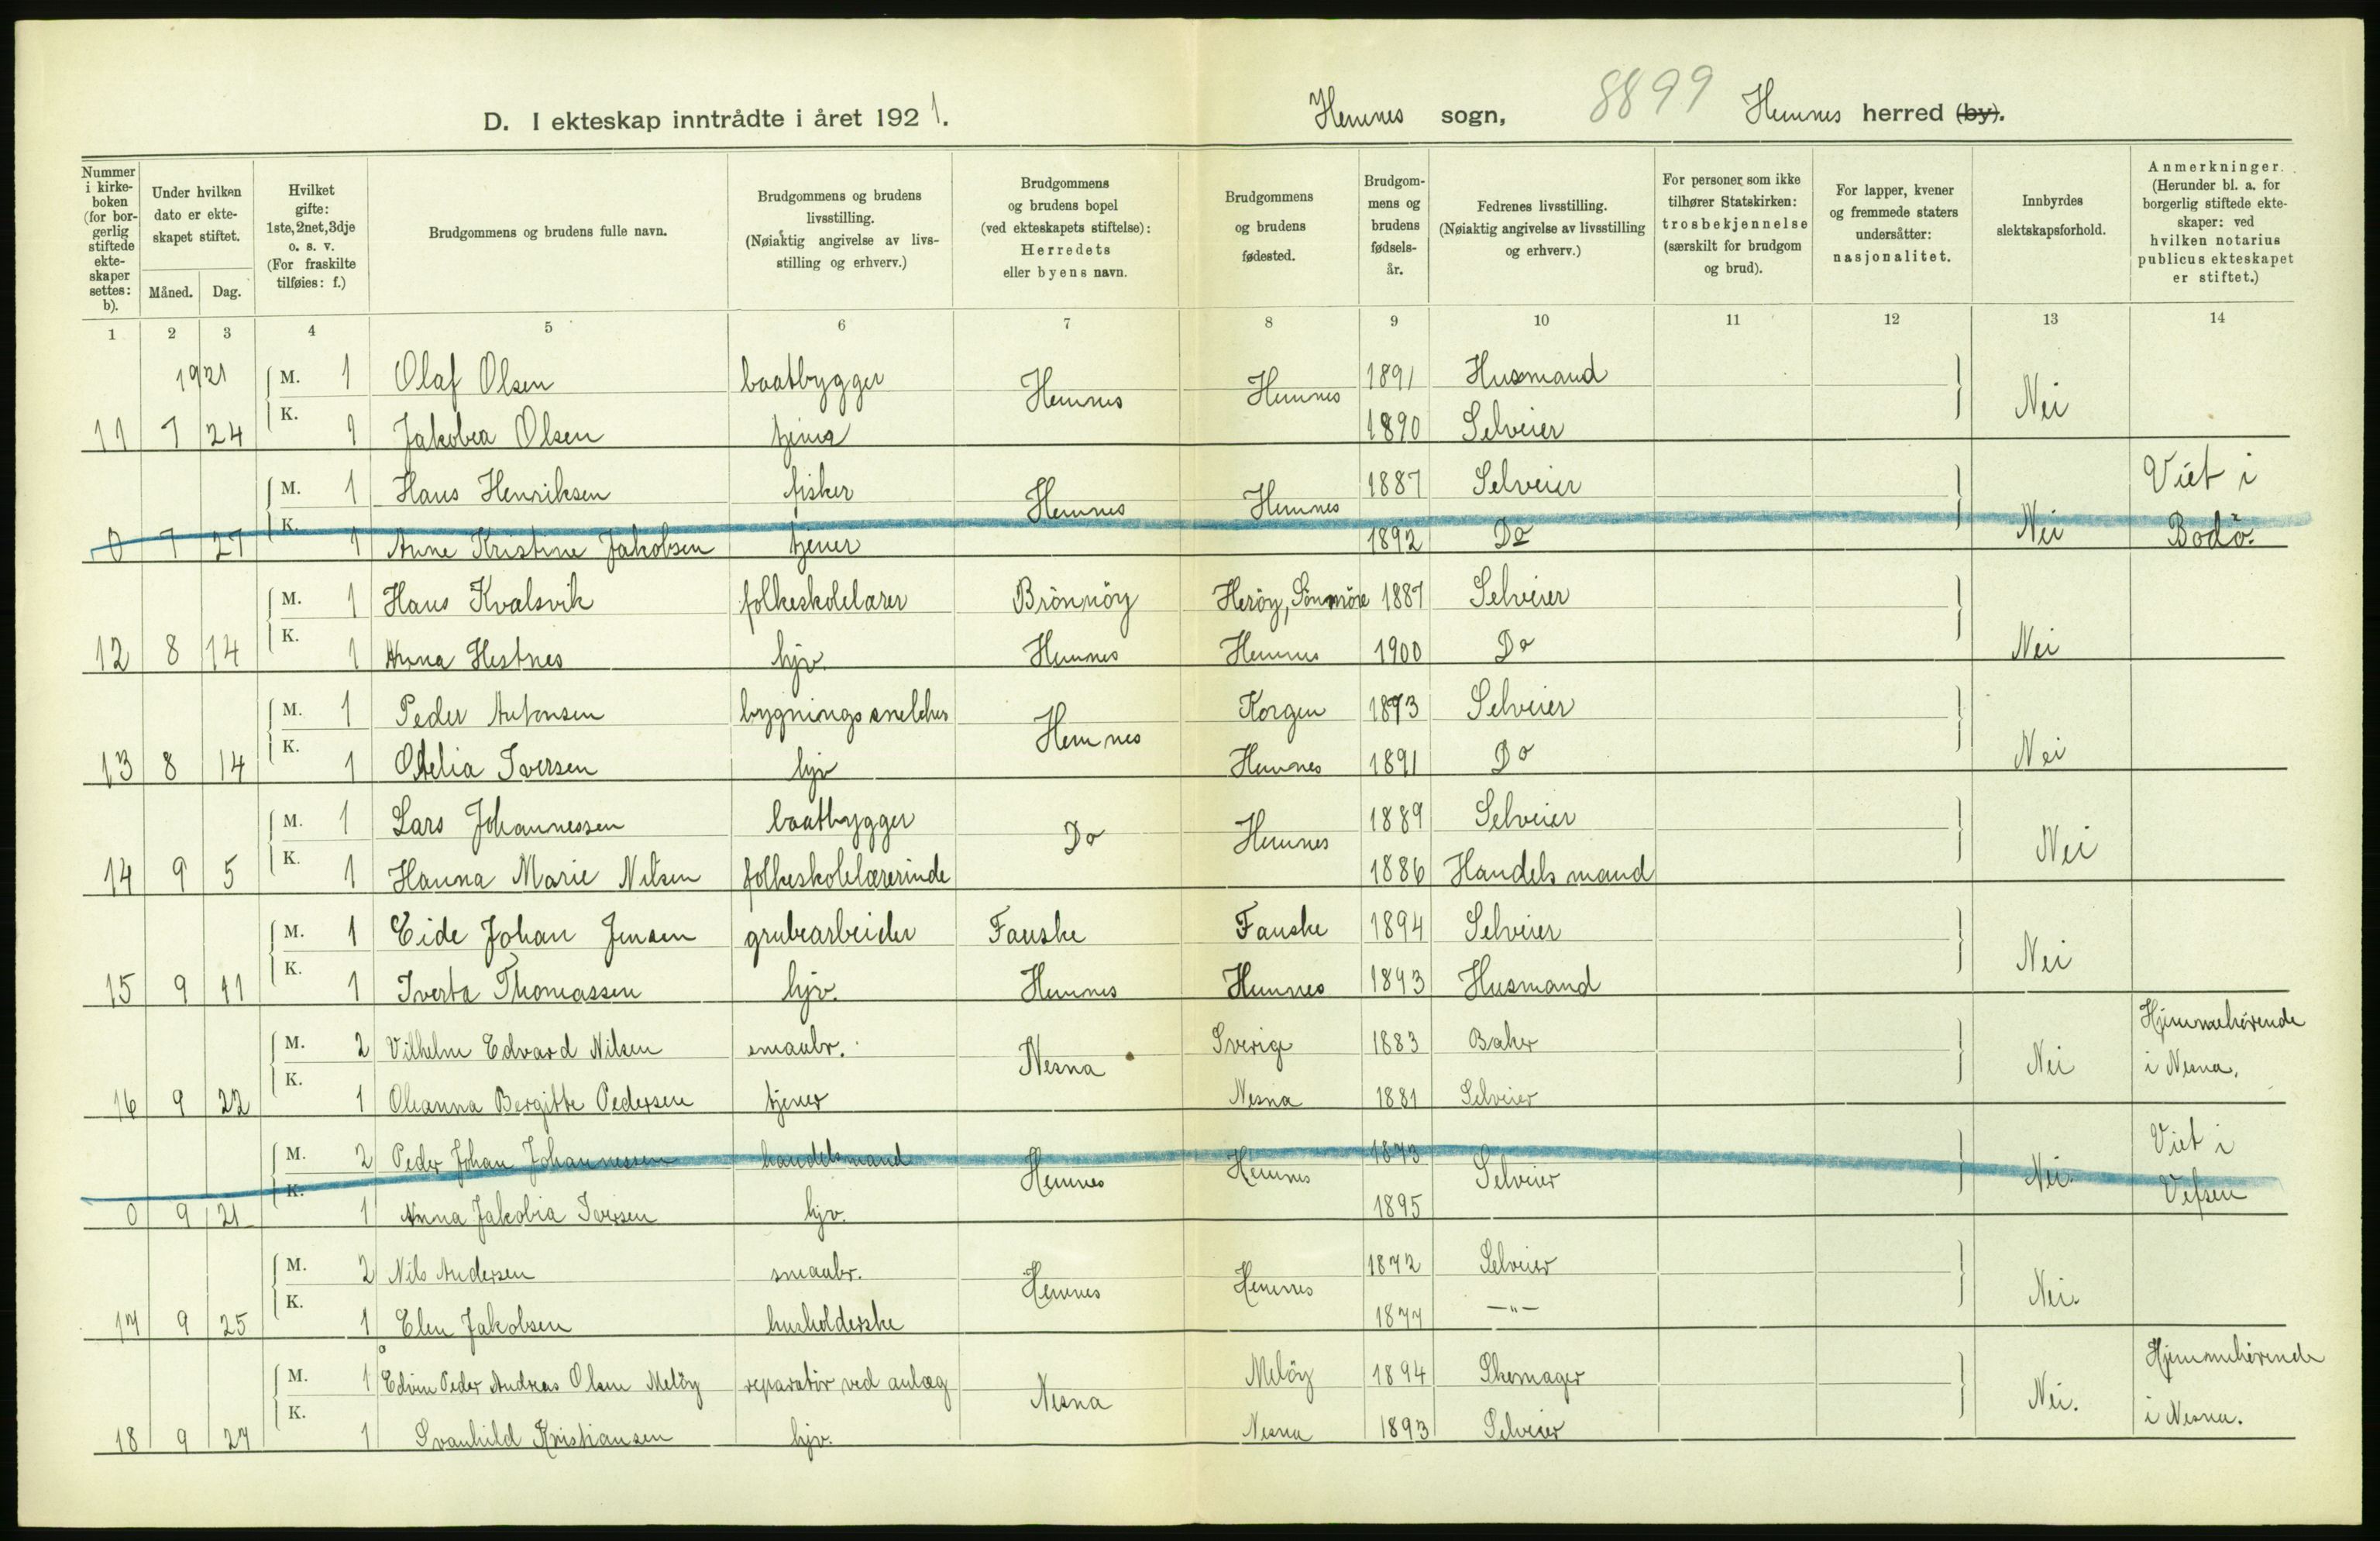 D. I ekteskap inntrådte i året 1921.
Hemnes sogn, 8899 Hemnes herred (by).
Nummer i kirke-boken (for bor-gerlig stiftede ekte-skaper settes: b).
Under hvilken dato er ekte-skapet stiftet.
Måned. Dag.
Hvilket gifte: 1ste, 2net, 3dje o. s. v. (For fraskilte tilføies: f.)
Brudgommens og brudens fulle navn.
Brudgommens og brudens livsstilling. (Nøiaktig angivelse av livs-stilling og erhverv.)
Brudgommens og brudens bopel (ved ekteskapets stiftelse): Herredets eller byens navn.
Brudgommens og brudens fødested.
Brudgom-mens og brudens fødsels-år.
Fedrenes livsstilling. (Nøiaktig angivelse av livsstilling og erhverv.)
For personer som ikke tilhører Statskirken: trosbekjennelse (særskilt for brudgom og brud).
For lapper, kvener og fremmede staters undersåtter: nasjonalitet.
Innbyrdes slektskapsforhold.
Anmerkninger. (Herunder bl. a. for borgerlig stiftede ekte-skaper: ved hvilken notarius publicus ekteskapet er stiftet.)
1 2 3 4 5 6 7 8 9 10 11 12 13 14
1921 M. 1 Olaf Olsen baatbygger Hemnes Hemnes 1891 Husmand Nei
11 7 24 K. 1 Jakobea Olsen tjener 1890 Selveier
M. 1 Hans Henriksen fisker Hemnes Hemnes 1887 Selveier Nei Viet i
0 7 27 K. 1 Anne Kristine Jakobsen tjener 1892 Do Bodö.
M. 1 Hans Kvalsvik folkeskolelærer Brönnöy Heröy, Sönmöre 1887 Selveier
12 8 14 K. 1 Anna Hestnes hjv. Hemnes Hemnes 1900 Do Nei
M. 1 Peder Antonsen bygningssnekker Hemnes Korgen 1893 Selveier
13 8 14 K. 1 Odelia Iversen hjv Hemnes 1891 Do Nei
M. 1 Lars Johannessen baatbygger Do Hemnes 1889 Selveier Nei
14 9 5 K. 1 Hanna Marie Nilsen folkeskolelærerinde 1886 Handelsmand
M. 1 Eide Johan Jensen grubearbeider Fauske Fauske 1894 Selveier Nei
15 9 11 K. 1 Iverta Thomassen hjv. Hemnes Hemnes 1893 Husmand
M. 2 Vilhelm Edvard Nilsen smaabr. Nesna Sverige 1883 Baker Nei Hjemmehörende
16 9 22 K. 1 Oleanna Bergitte Pedersen tjener Nesna 1881 Selveier i Nesna.
M. 2 Peder Johan Johannessen handelsmand Hemnes Hemnes 1873 Selveier Nei. Viet i
0 9 21 K. 1 Anna Jakobia Iversen hjv. 1895 Vefsen
M. 2 Nils Andersen smaabr. Hemnes Hemnes 1872 Selveier Nei.
17 9 25 K. 1 Elen Jakobsen husholderske 1877 —"—
M. 1 Edvin Peder Andreas Olsen Melöy reparatör ved anlæg Nesna Melöy 1894 Skomager Nei. Hjemmehörende
18 9 27 K. 1 Svanhild Kristiansen hjv. Nesna 1893 Selveier i Nesna.